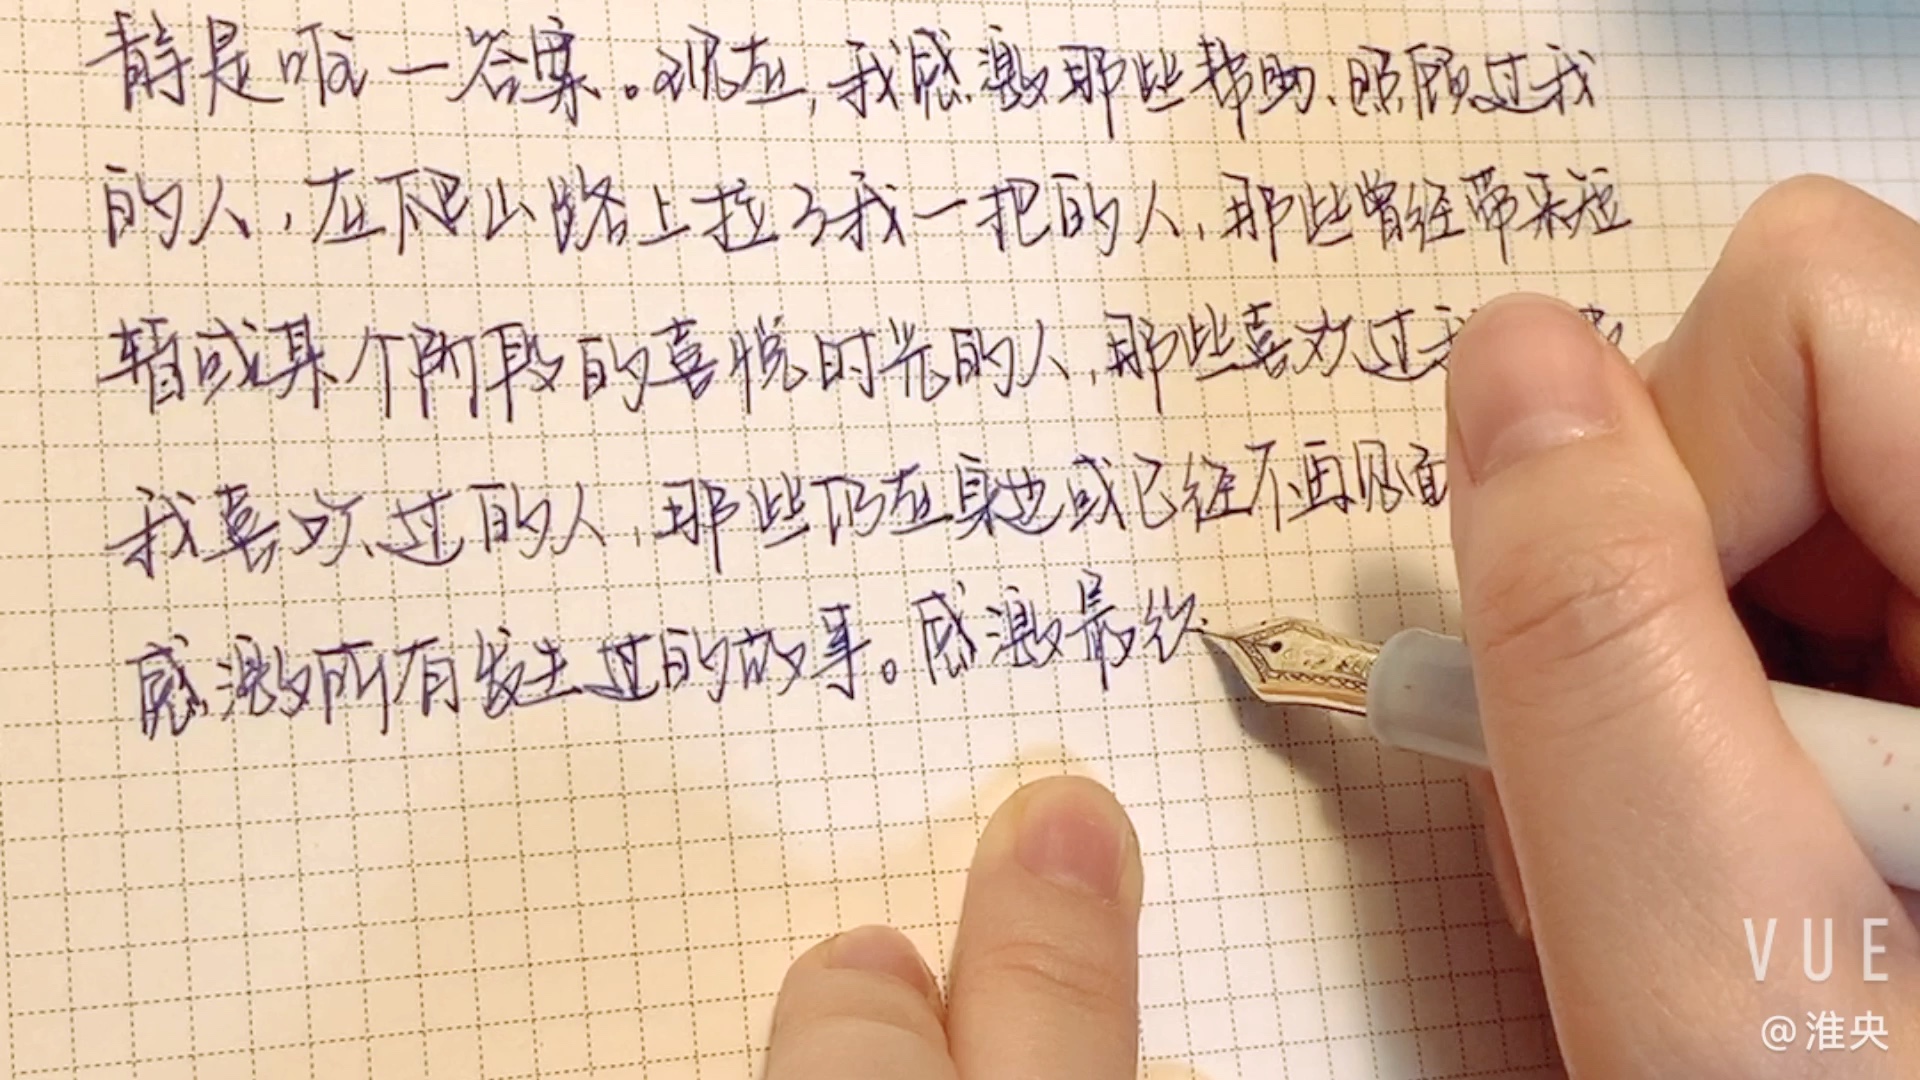 静是唯一答案。现在,我感激那些帮助、照顾过我
的人,在爬山路上拉了我一把的人,那些曾经带来短
暂或某个阶段的喜悦时光的人,那些喜欢过我
我喜欢过的人,那些仍在身边或已经不再见面
感激所有发生过的故事。感激最终
VUE
@淮央